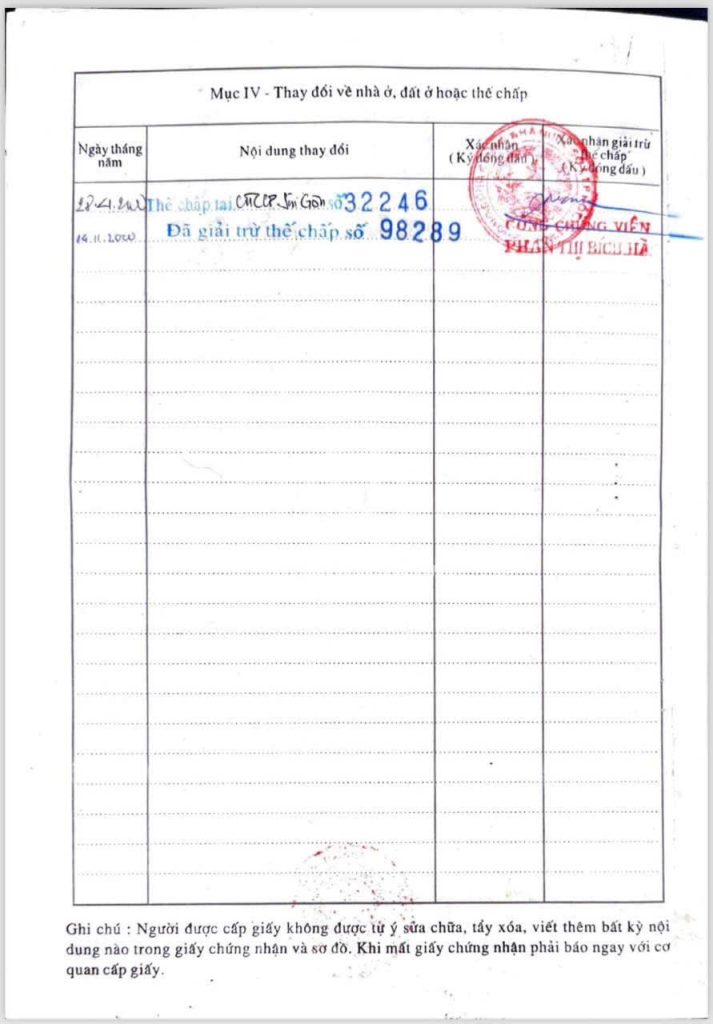 Mục IV - Thay đổi về nhà ở, đất ở hoặc thế chấp
Ngày tháng năm
Nội dung thay đổi
Xác nhận
( Ký đóng dấu )
Xác nhận giải trừ
thế chấp
( Ký đóng dấu )
Thế chấp tại Sài Gòn số 32246
14.11.2000 Đã giải trừ thế chấp số 98289
CÔNG CHỨNG VIÊN
PHAN THỊ BÍCH HÀ
Ghi chú : Người được cấp giấy không được tự ý sửa chữa, tẩy xóa, viết thêm bất kỳ nội
dung nào trong giấy chứng nhận và sơ đồ. Khi mất giấy chứng nhận phải báo ngay với cơ
quan cấp giấy.